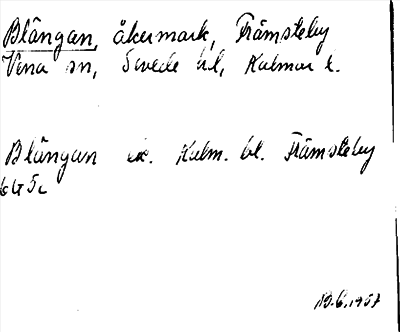 Blångan, åkermark, Främsteby
Vena sn, Sevede hd, Kalmar l.
Blångan ek. Kalm. bl. Främsteby
6G5c
1957